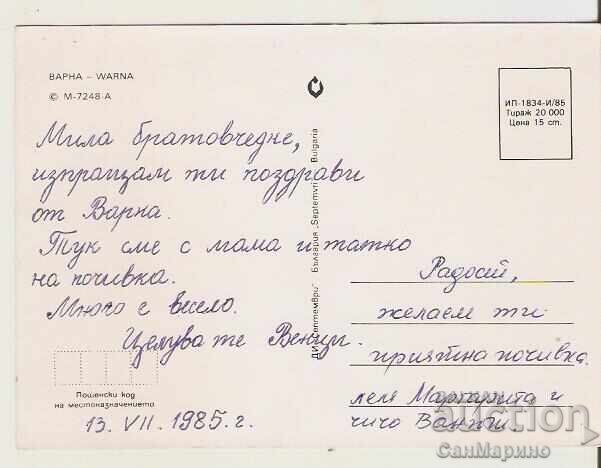 ВАРНА – WARNA
© М-7248-А
ИП-1834-И/85
Тираж 20 000
Цена 15 ст.
Мила братовчедке,
изпращам ти поздрави
от Варна.
Тук сме с мама и татко
на почивка.
Много е весело.
Целува те Венци.
Пощенски код
на местоназначението
13. VII. 1985. г.
ДИ „Септември“ България „Septemvri“ Bulgaria
Радост,
желаем ти
приятна почивка.
леля Маргарита и
чичо
auction
СанМарино